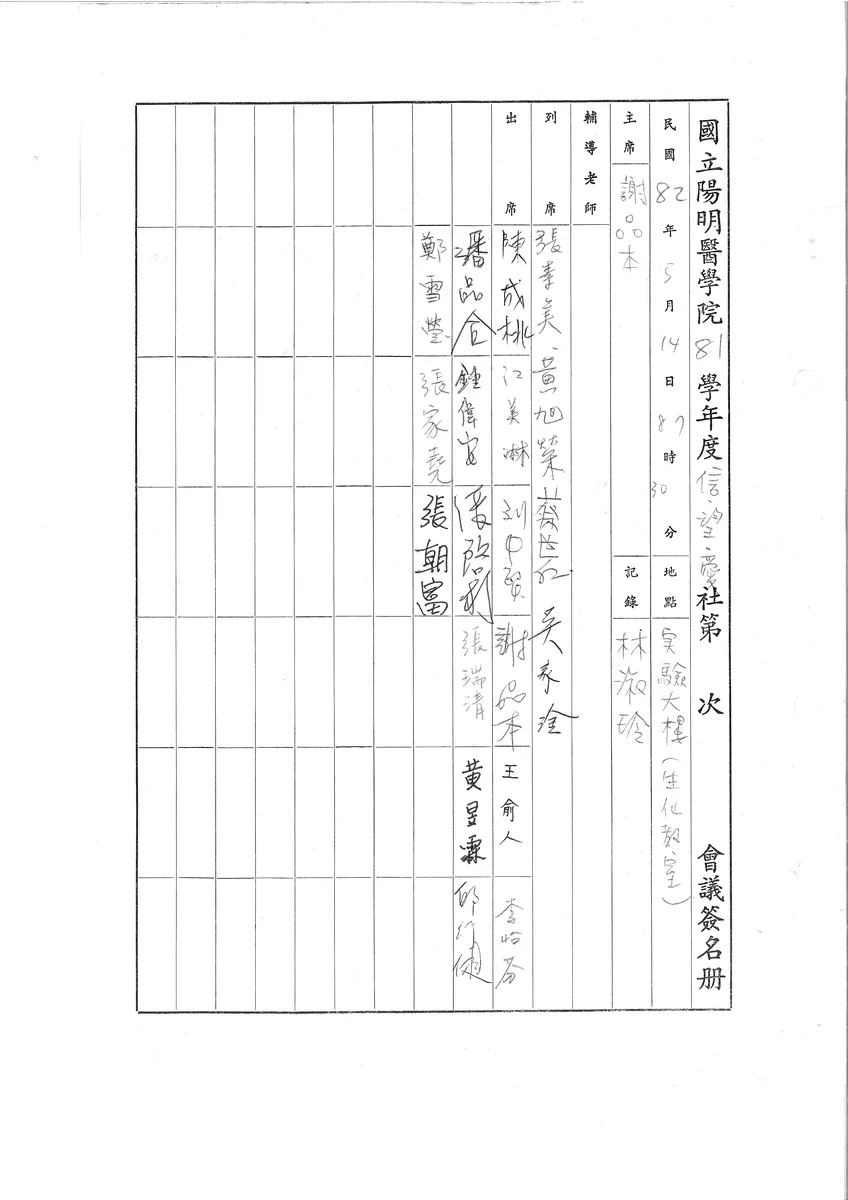 國立陽明醫學院81學年度信望愛社第 次 會議簽名册
民國82年5月14日 時30分 地點 实驗大樓(生化教室)
主席 謝品本 記錄 林淑玲
輔導老師
列席 張素美、黃旭榮 蔡世仁 吳家
出席 陳成桃 江美琳 謝品本 王俞人 李怡芬
潘品合 鍾偉家 張瑞清 黃昱霖 邱行健
鄭雪瑩 張家堯 張朝富